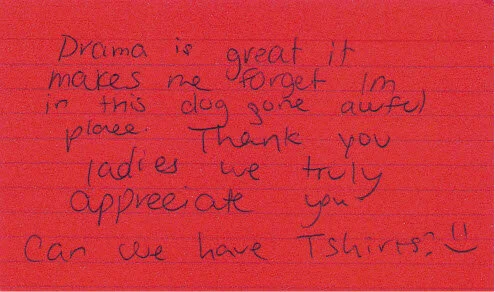 Drama is great it
makes me forget Im
in this dog gone awful
place. Thank you
ladies we truly
appreciate you
Can we have Tshirts?